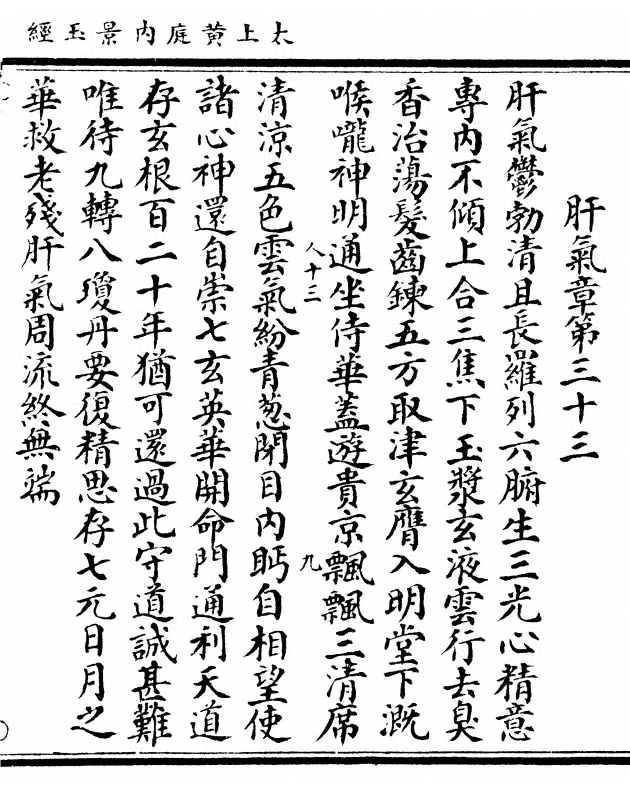 太上黄庭内景玉經
肝氣章第三十三
肝氣鬱勃清且長羅列六腑生三光心精意
專内不傾上合三焦下玉漿玄液雲行去臭
香治蕩髮齒鍊五方取津玄膺入明堂下溉
喉嚨神明通坐侍華蓋遊貴京飄飄三清席
人十三
九
清涼五色雲氣紛青葱閉目内眄自相望使
諸心神還自崇七玄英華開命門通利天道
存玄根百二十年猶可還過此守道誠甚難
唯待九轉八瓊丹要復精思存七元日月之
華救老殘肝氣周流終無端